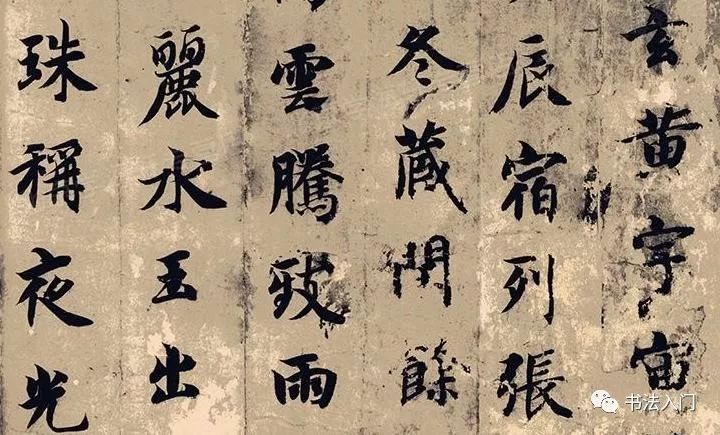 玄黄宇宙
辰宿列張
冬藏閏餘
雲騰致雨
麗水玉出
珠稱夜光
书法入门